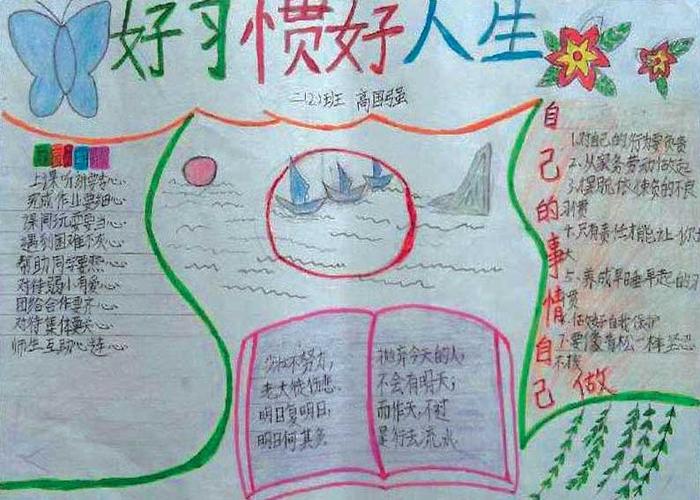 好习惯好人生
二(2)班 高国强
上课听讲要专心
完成作业要细心
课间玩耍要当心
遇到困难不灰心
帮助同学要热心
对待弱小有爱心
团结合作要齐心
对待集体要关心
师生互动心连心
少壮不努力,
老大徒伤悲.
明日复明日,
明日何其多
抛弃今天的人,
不会有明天;
而昨天,不过
是行去流水
自己的事情自己做
1.对自己的行为要负责
2.从家务劳动做起
3.摆脱依
习惯
4.只有责任才能让你
大
5.养成早睡早起的习
惯
自我保护
7.要像青松一样坚忍
不拔